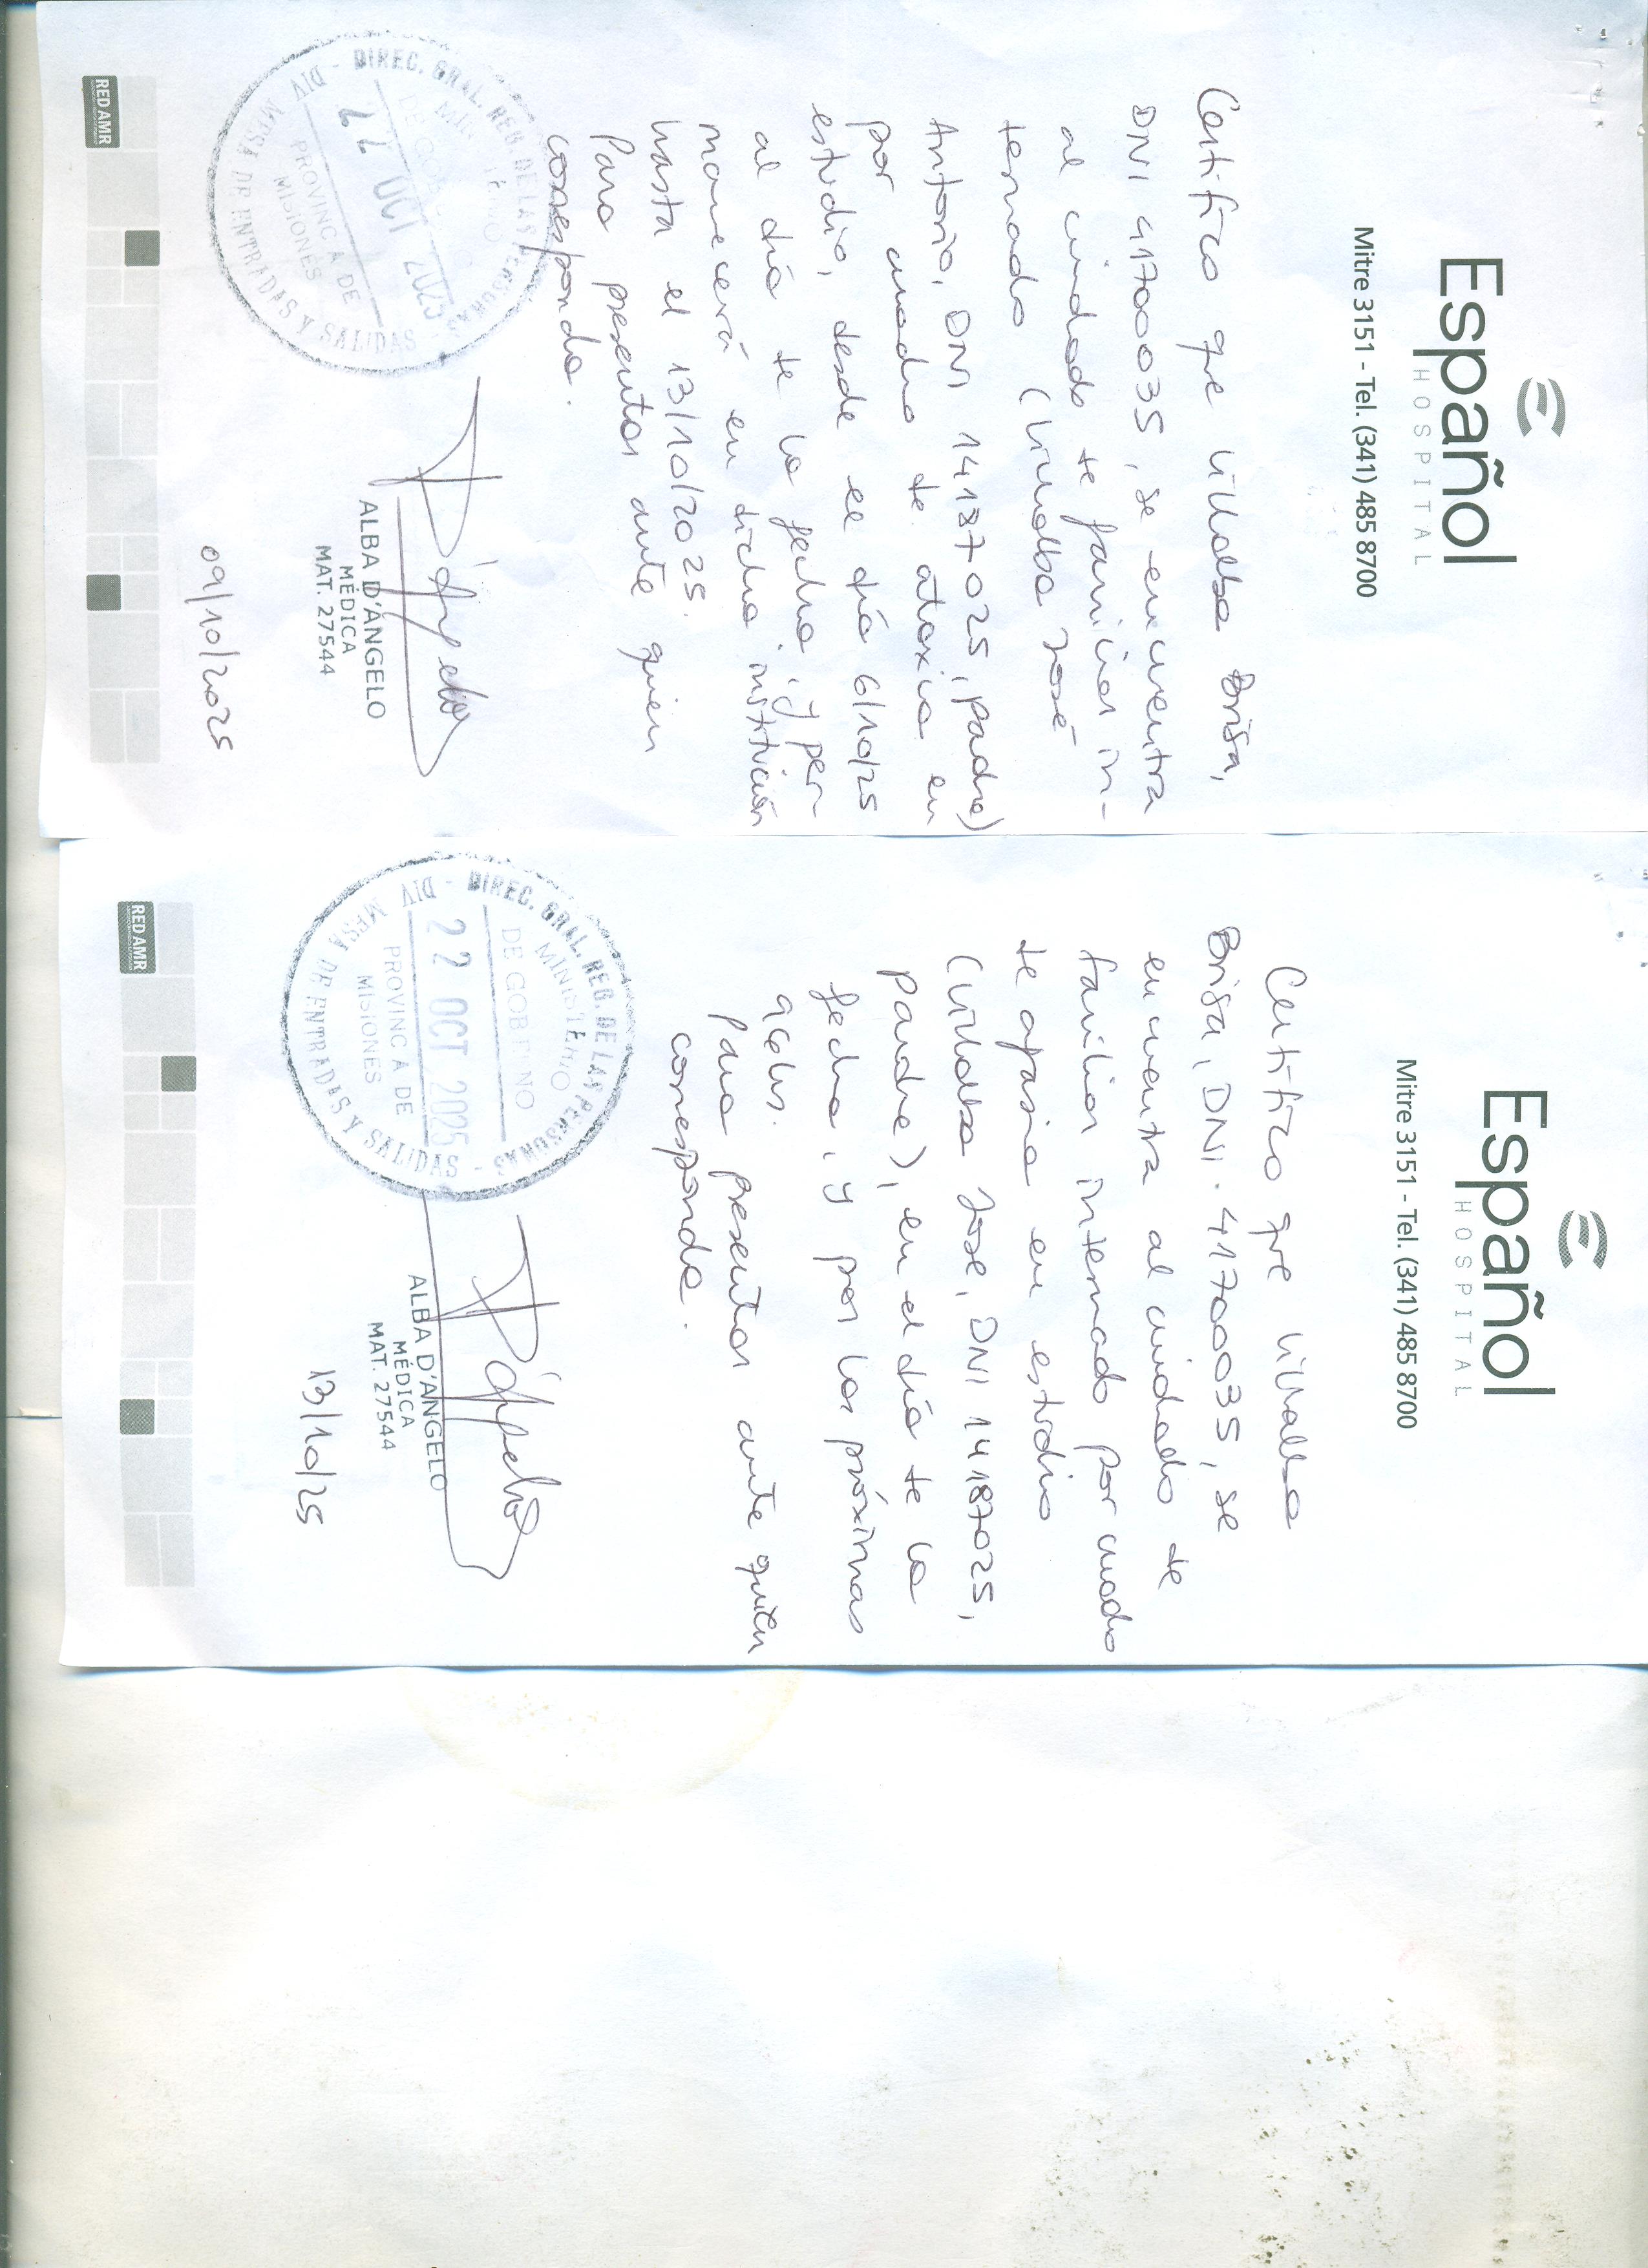 Español
HOSPITAL
Mitre 3151 - Tel. (341) 485 8700
Certifico que Villalba Brisa,
DNI 41700035, se encuentra
al cuidado de familiar in-
ternado (Villalba José
Antonio, DNI 14187025, padre)
por cuadro de ataxia en
estudio, desde el día 6/10/25
al día de la fecha, y per-
manecerá en dicha institución
hasta el 13/10/2025.
Para presentar ante quien
corresponda.
DIREC. GRAL. REG. DE LAS PERSONAS
DE GOB
22 OCT 2025
PROVINCIA DE
MISIONES
DIV MESA DE ENTRADAS Y SALIDAS
ALBA D'ÁNGELO
MÉDICA
MAT. 27544
09/10/2025
RED AMR
Español
HOSPITAL
Mitre 3151 - Tel. (341) 485 8700
Certifico que Villalba
Brisa, DNI. 41700035, se
encuentra al cuidado de
familiar internado por cuadro
de afasia en estudio
(Villalba José, DNI 14187025,
padre), en el día de la
fecha, y por las próximas
Para presentar ante quien
corresponda.
DIREC. GRAL. REG. DE LAS PERSONAS
MINISTERIO
DE GOBIERNO
22 OCT 2025
PROVINCIA DE
MISIONES
DIV MESA DE ENTRADAS Y SALIDAS
ALBA D'ÁNGELO
MÉDICA
MAT. 27544
13/10/25
RED AMR